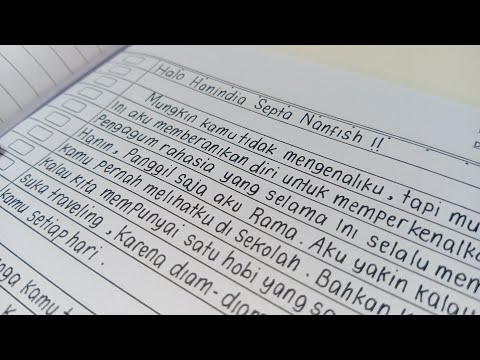 Halo Hanindia Septa Nanfish !!
Mungkin kamu tidak mengenaliku, tapi mu
ini aku memberanikan diri untuk memperkenalka
Pengagum rahasia yang selama ini selalu mem
Hanin, Panggil saja aku Rama. Aku yakin kalau
kamu pernah melihatku di sekolah. Bahkan
kalau kita mempunyai satu hobi yang sa
suka traveling, karena diam-diam
kamu setiap hari.
oga kamu t